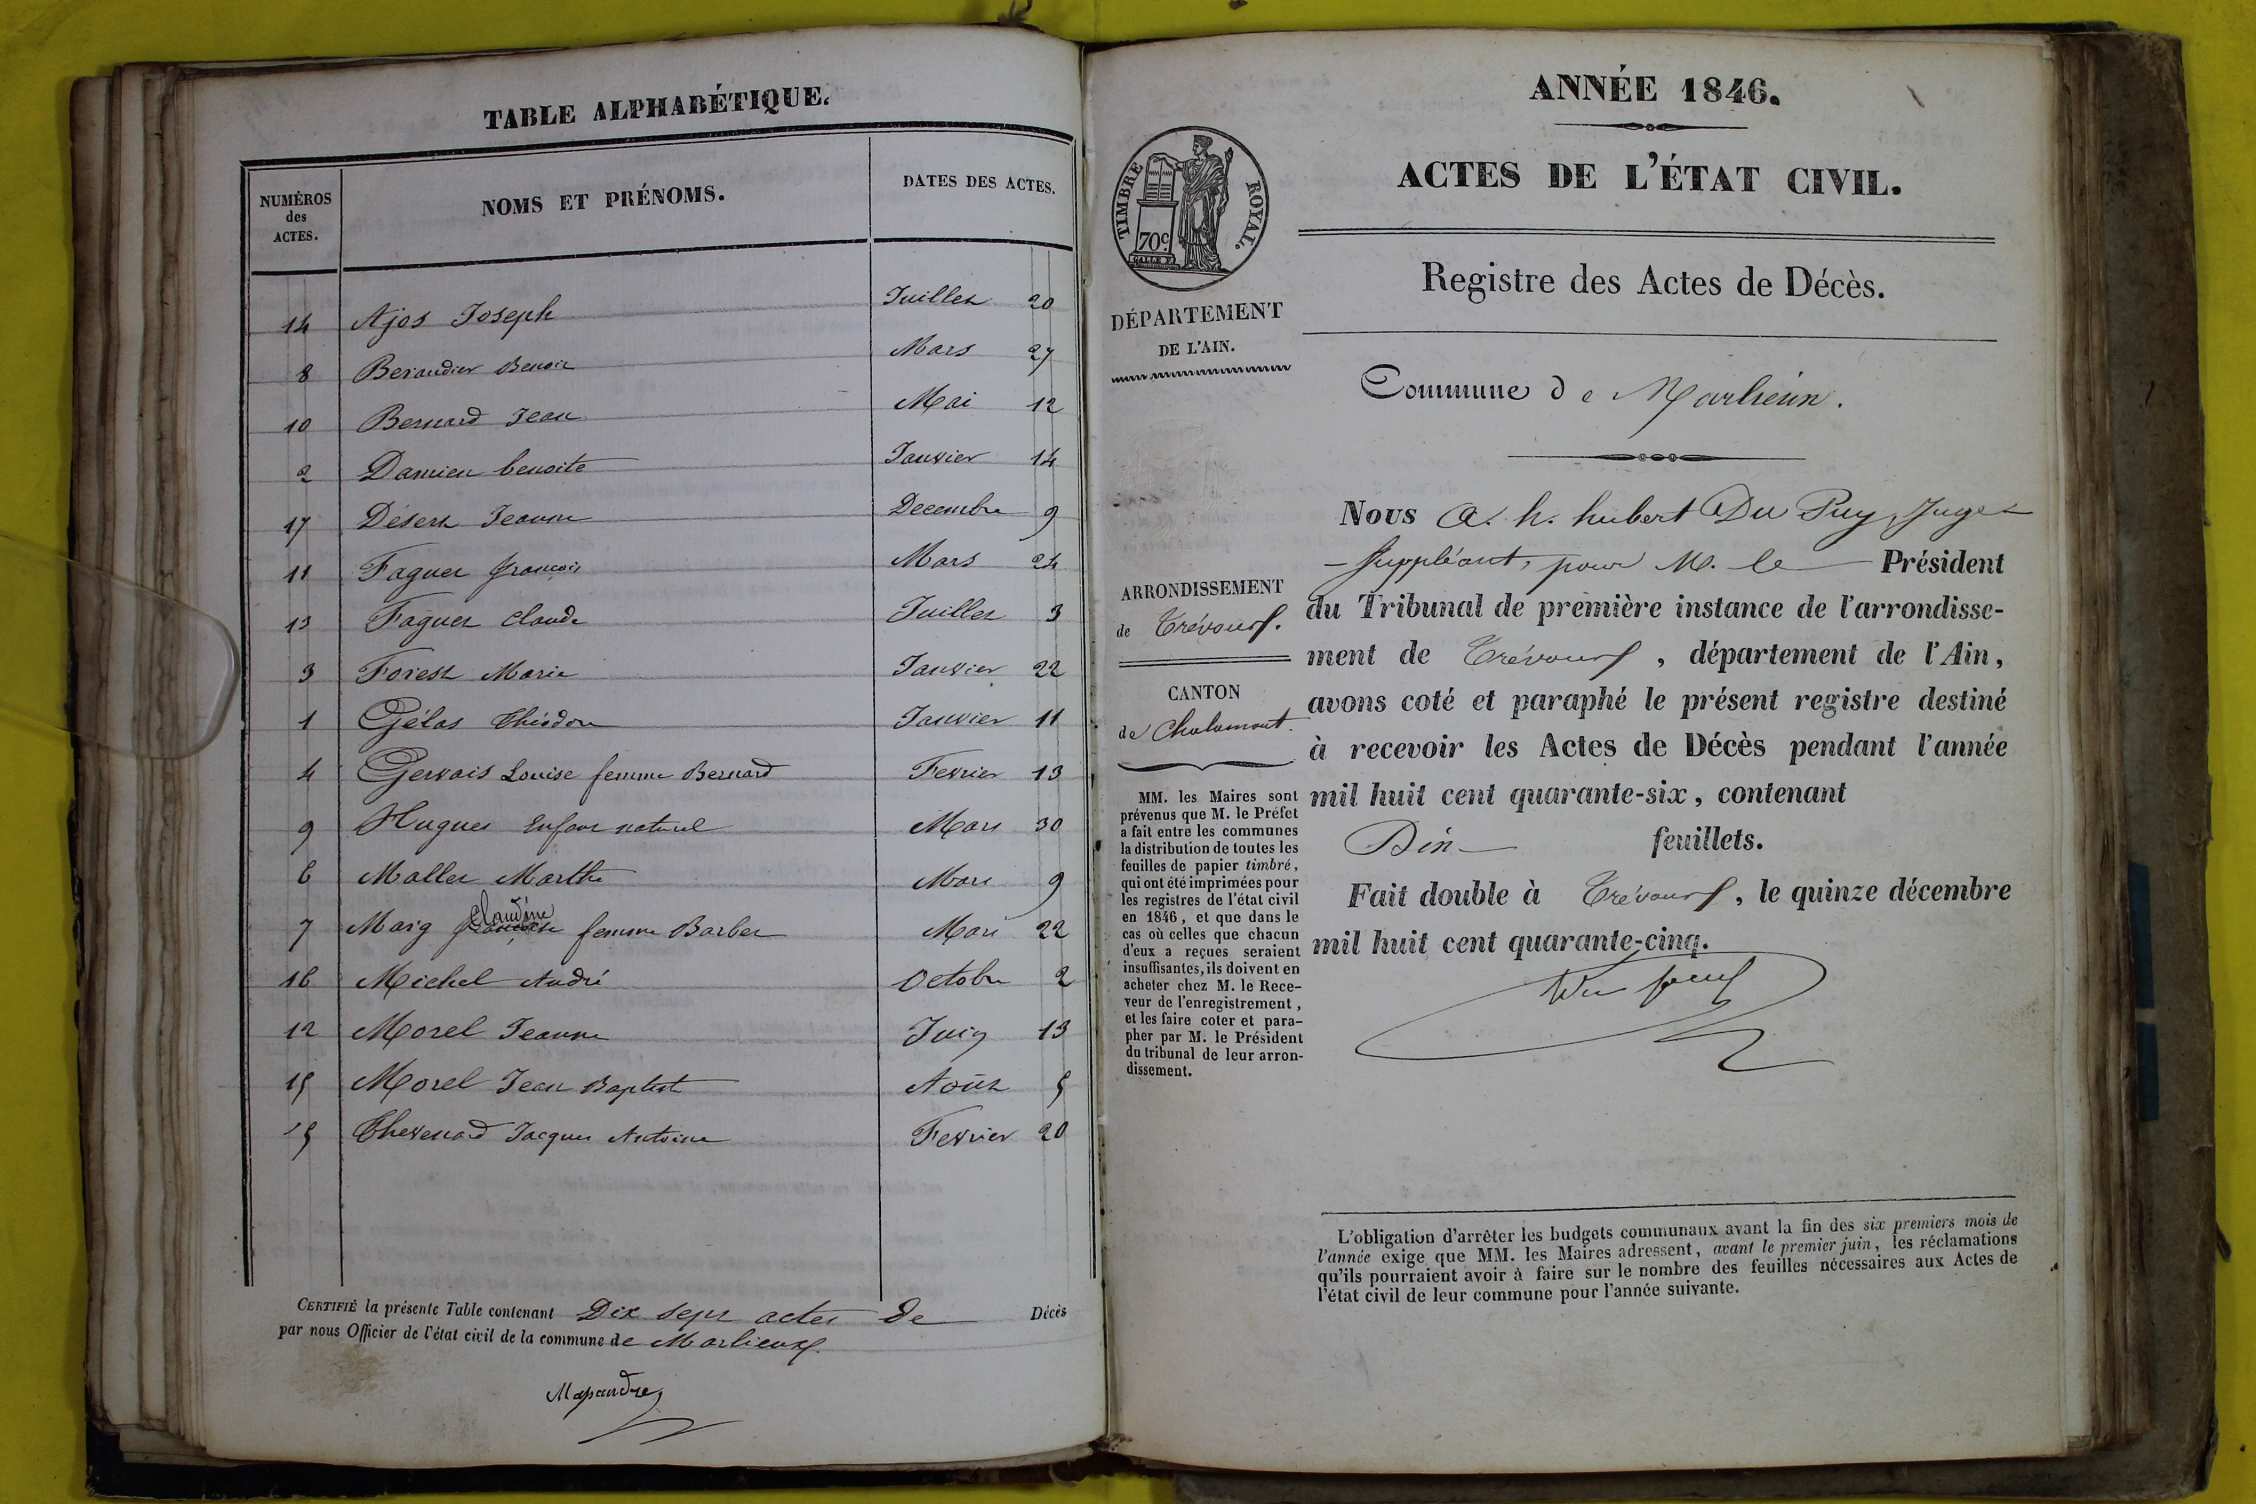 TABLE ALPHABÉTIQUE.
NUMÉROS des ACTES.
NOMS ET PRÉNOMS.
DATES DES ACTES.
14 Ajos Joseph Juillet 20
8 Beraudier Benoit Mars 27
10 Bernard Jean Mai 12
2 Damien benoite Janvier 14
17 Désert Jeanne Decembre 9
11 Faguet françois Mars 24
13 Faguet Claude Juillet 3
3 Forest Marie Janvier 22
1 Gélas Théodore Janvier 11
4 Gervais Louise femme Bernard Fevrier 13
9 Hugues Enfant naturel Mars 30
6 Mallet Marthe Mars 9
Claudine
7 Maig femme Barbet Mars 22
16 Michel André Octobre 2
12 Morel Jeanne Juin 13
15 Morel Jean Baptiste Août 5
5 Thevenard Jacques Antoine Fevrier 20
CERTIFIÉ la présente Table contenant Dix sept actes de Décès
par nous Officier de l'état civil de la commune de Marlieux
ANNÉE 1846.
ACTES DE L'ÉTAT CIVIL.
Registre des Actes de Décès.
TIMBRE ROYAL.
70c
DÉPARTEMENT
DE L'AIN.
Commune de Marlieux.
ARRONDISSEMENT
de Trévoux.
CANTON
de Chalamont.
MM. les Maires sont
prévenus que M. le Préfet
a fait entre les communes
la distribution de toutes les
feuilles de papier timbré,
qui ont été imprimées pour
les registres de l'état civil
en 1846, et que dans le
cas où celles que chacun
d'eux a reçues seraient
insuffisantes, ils doivent en
acheter chez M. le Rece-
veur de l'enregistrement,
et les faire coter et para-
pher par M. le Président
du tribunal de leur arron-
dissement.
Nous A. h. hubert Du Puy, Juge
Suppléant, pour M. le Président
du Tribunal de première instance de l'arrondisse-
ment de Trévoux, département de l'Ain,
avons coté et paraphé le présent registre destiné
à recevoir les Actes de Décès pendant l'année
mil huit cent quarante-six, contenant
Dix feuillets.
Fait double à Trévoux, le quinze décembre
mil huit cent quarante-cinq.
L'obligation d'arrêter les budgets communaux avant la fin des six premiers mois de
l'année exige que MM. les Maires adressent, avant le premier juin, les réclamations
qu'ils pourraient avoir à faire sur le nombre des feuilles nécessaires aux Actes de
l'état civil de leur commune pour l'année suivante.